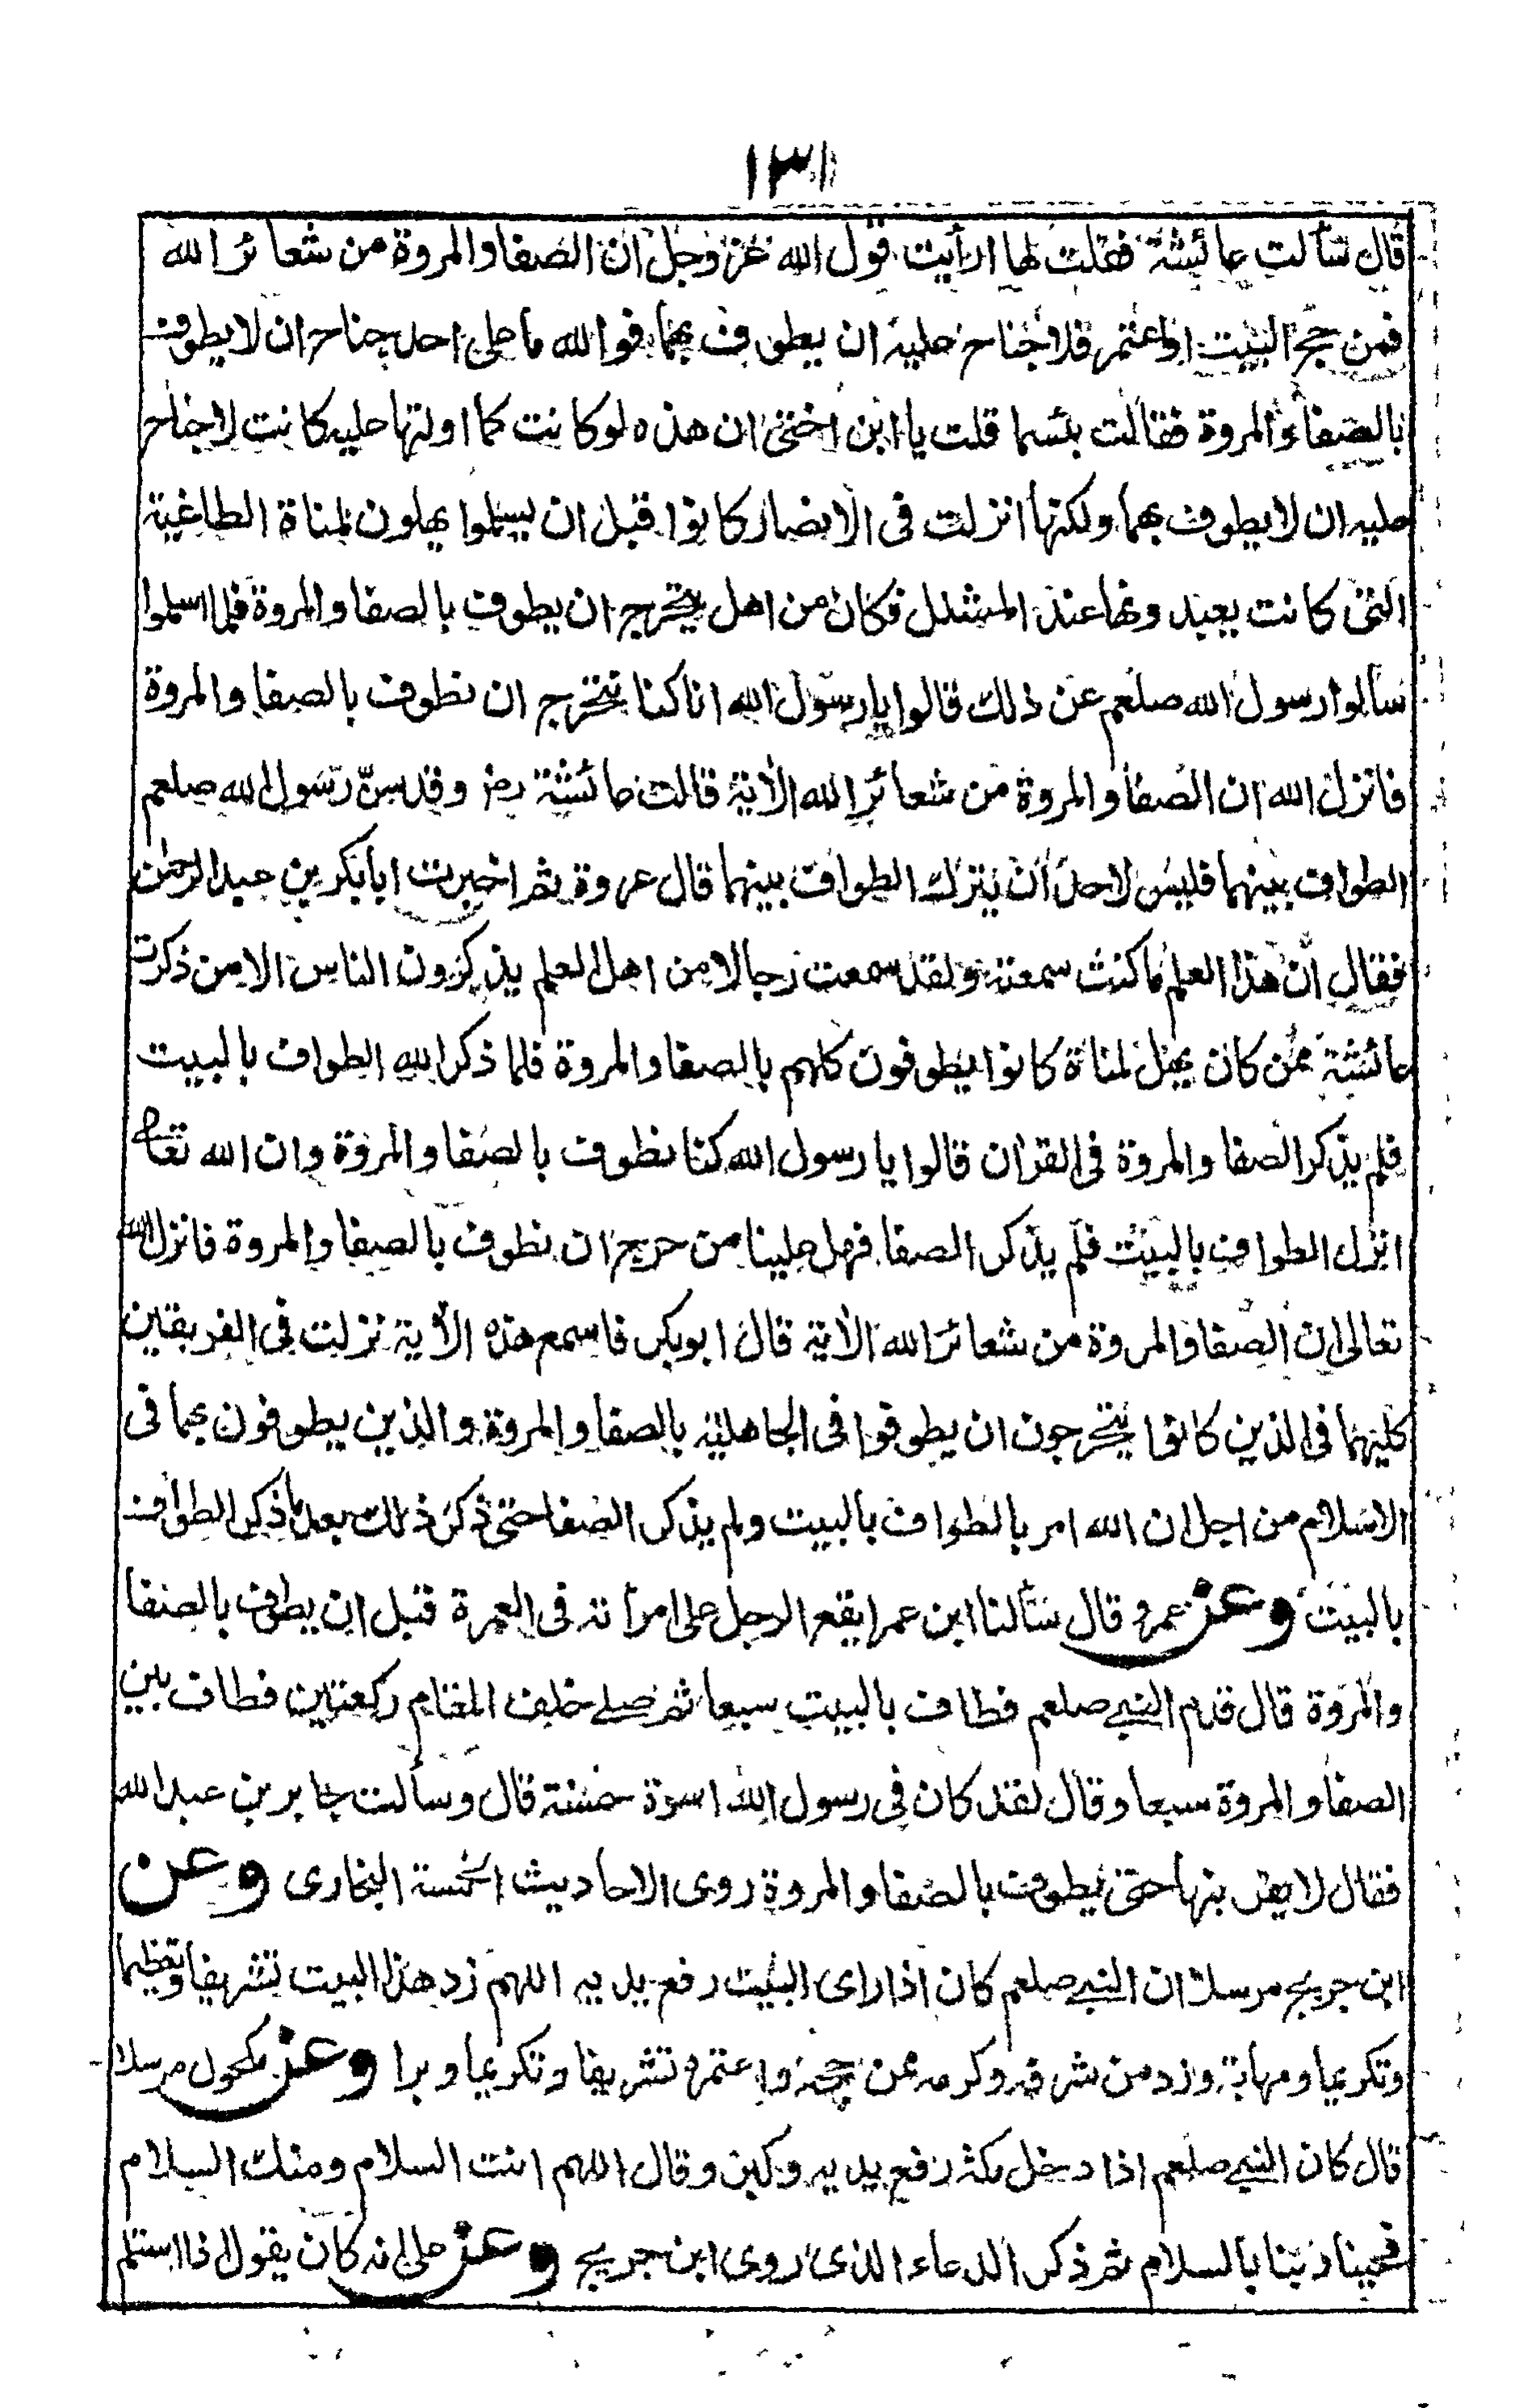 ١٣١
قال سألت عائشة فقلت لها ارأيت قول الله عز وجل ان الصفا والمروة من شعائر الله
فمن حج البيت او اعتمر فلا جناح عليه ان يطوف بهما فوالله ما على احد جناح ان لا يطوف
بالصفا والمروة فقالت بئسما قلت يا ابن اختى ان هذه لو كانت كما اولتها عليه كانت لا جناح
عليه ان لا يطوف بهما ولكنها انزلت فى الانصار كانوا قبل ان يسلموا يهلون لمناة الطاغية
التى كانت يعبدونها عند المشلل فكان من اهل يتحرج ان يطوف بالصفا والمروة فلما اسلموا
سألوا رسول الله صلعم عن ذلك قالوا يا رسول الله انا كنا نتحرج ان نطوف بالصفا والمروة
فانزل الله ان الصفا والمروة من شعائر الله الأية قالت عائشة رض وقد سنّ رسول الله صلعم
الطواف بينهما فليس لاحد أن يترك الطواف بينهما قال عروة ثم اخبرت ابا بكر بن عبد الرحمن
فقال ان هذا العلم ما كنت سمعته ولقد سمعت رجالا من اهل العلم يذكرون الناس الا من ذكرت
عائشة ممن كان يهل لمناة كانوا يطوفون كلهم بالصفا والمروة فلما ذكر الله الطواف بالبيت
فلم يذكر الصفا والمروة فى القرأن قالوا يا رسول الله كنا نطوف بالصفا والمروة وان الله تعالى
انزل الطواف بالبيت فلم يذكر الصفا فهل علينا من حرج ان نطوف بالصفا والمروة فانزل الله
تعالى ان الصفا والمروة من شعائر الله الأية قال ابوبكر فاسمع هذه الأية نزلت فى الفريقين
كليهما فى الذين كانوا يتحرجون ان يطوفوا فى الجاهلية بالصفا والمروة والذين يطوفون بهما فى
الاسلام من اجل ان الله امر بالطواف بالبيت ولم يذكر الصفا حتى ذكر ذلك بعد ما ذكر الطواف
بالبيت وعن عمرو قال سألنا ابن عمر ايقع الرجل على امرأته فى العمرة قبل ان يطوف بالصفا
والمروة قال قدم النبي صلعم فطاف بالبيت سبعا ثم صلے خلف المقام ركعتين فطاف بين
الصفا والمروة سبعا وقال لقد كان فى رسول الله اسوة حسنة قال وسألت جابر بن عبد الله
فقال لا يقربنها حتى يطوف بالصفا والمروة روى الاحاديث الخمسة البخارى وعن
ابن جريج مرسلا ان النبي صلعم كان اذا راى البيت رفع يديه اللهم زد هذا البيت تشريفا وتعظيما
وتكريما ومهابة وزد من شرفه وكرمه ممن حجه واعتمره تشريفا وتكريما وبرا وعن مكحول مرسلا
قال كان النبي صلعم اذا دخل مكة رفع يديه وكبر وقال اللهم انت السلام ومنك السلام
فحينا ربنا بالسلام ثم ذكر الدعاء الذى روى ابن جريج وعن على انه كان يقول اذا استلم